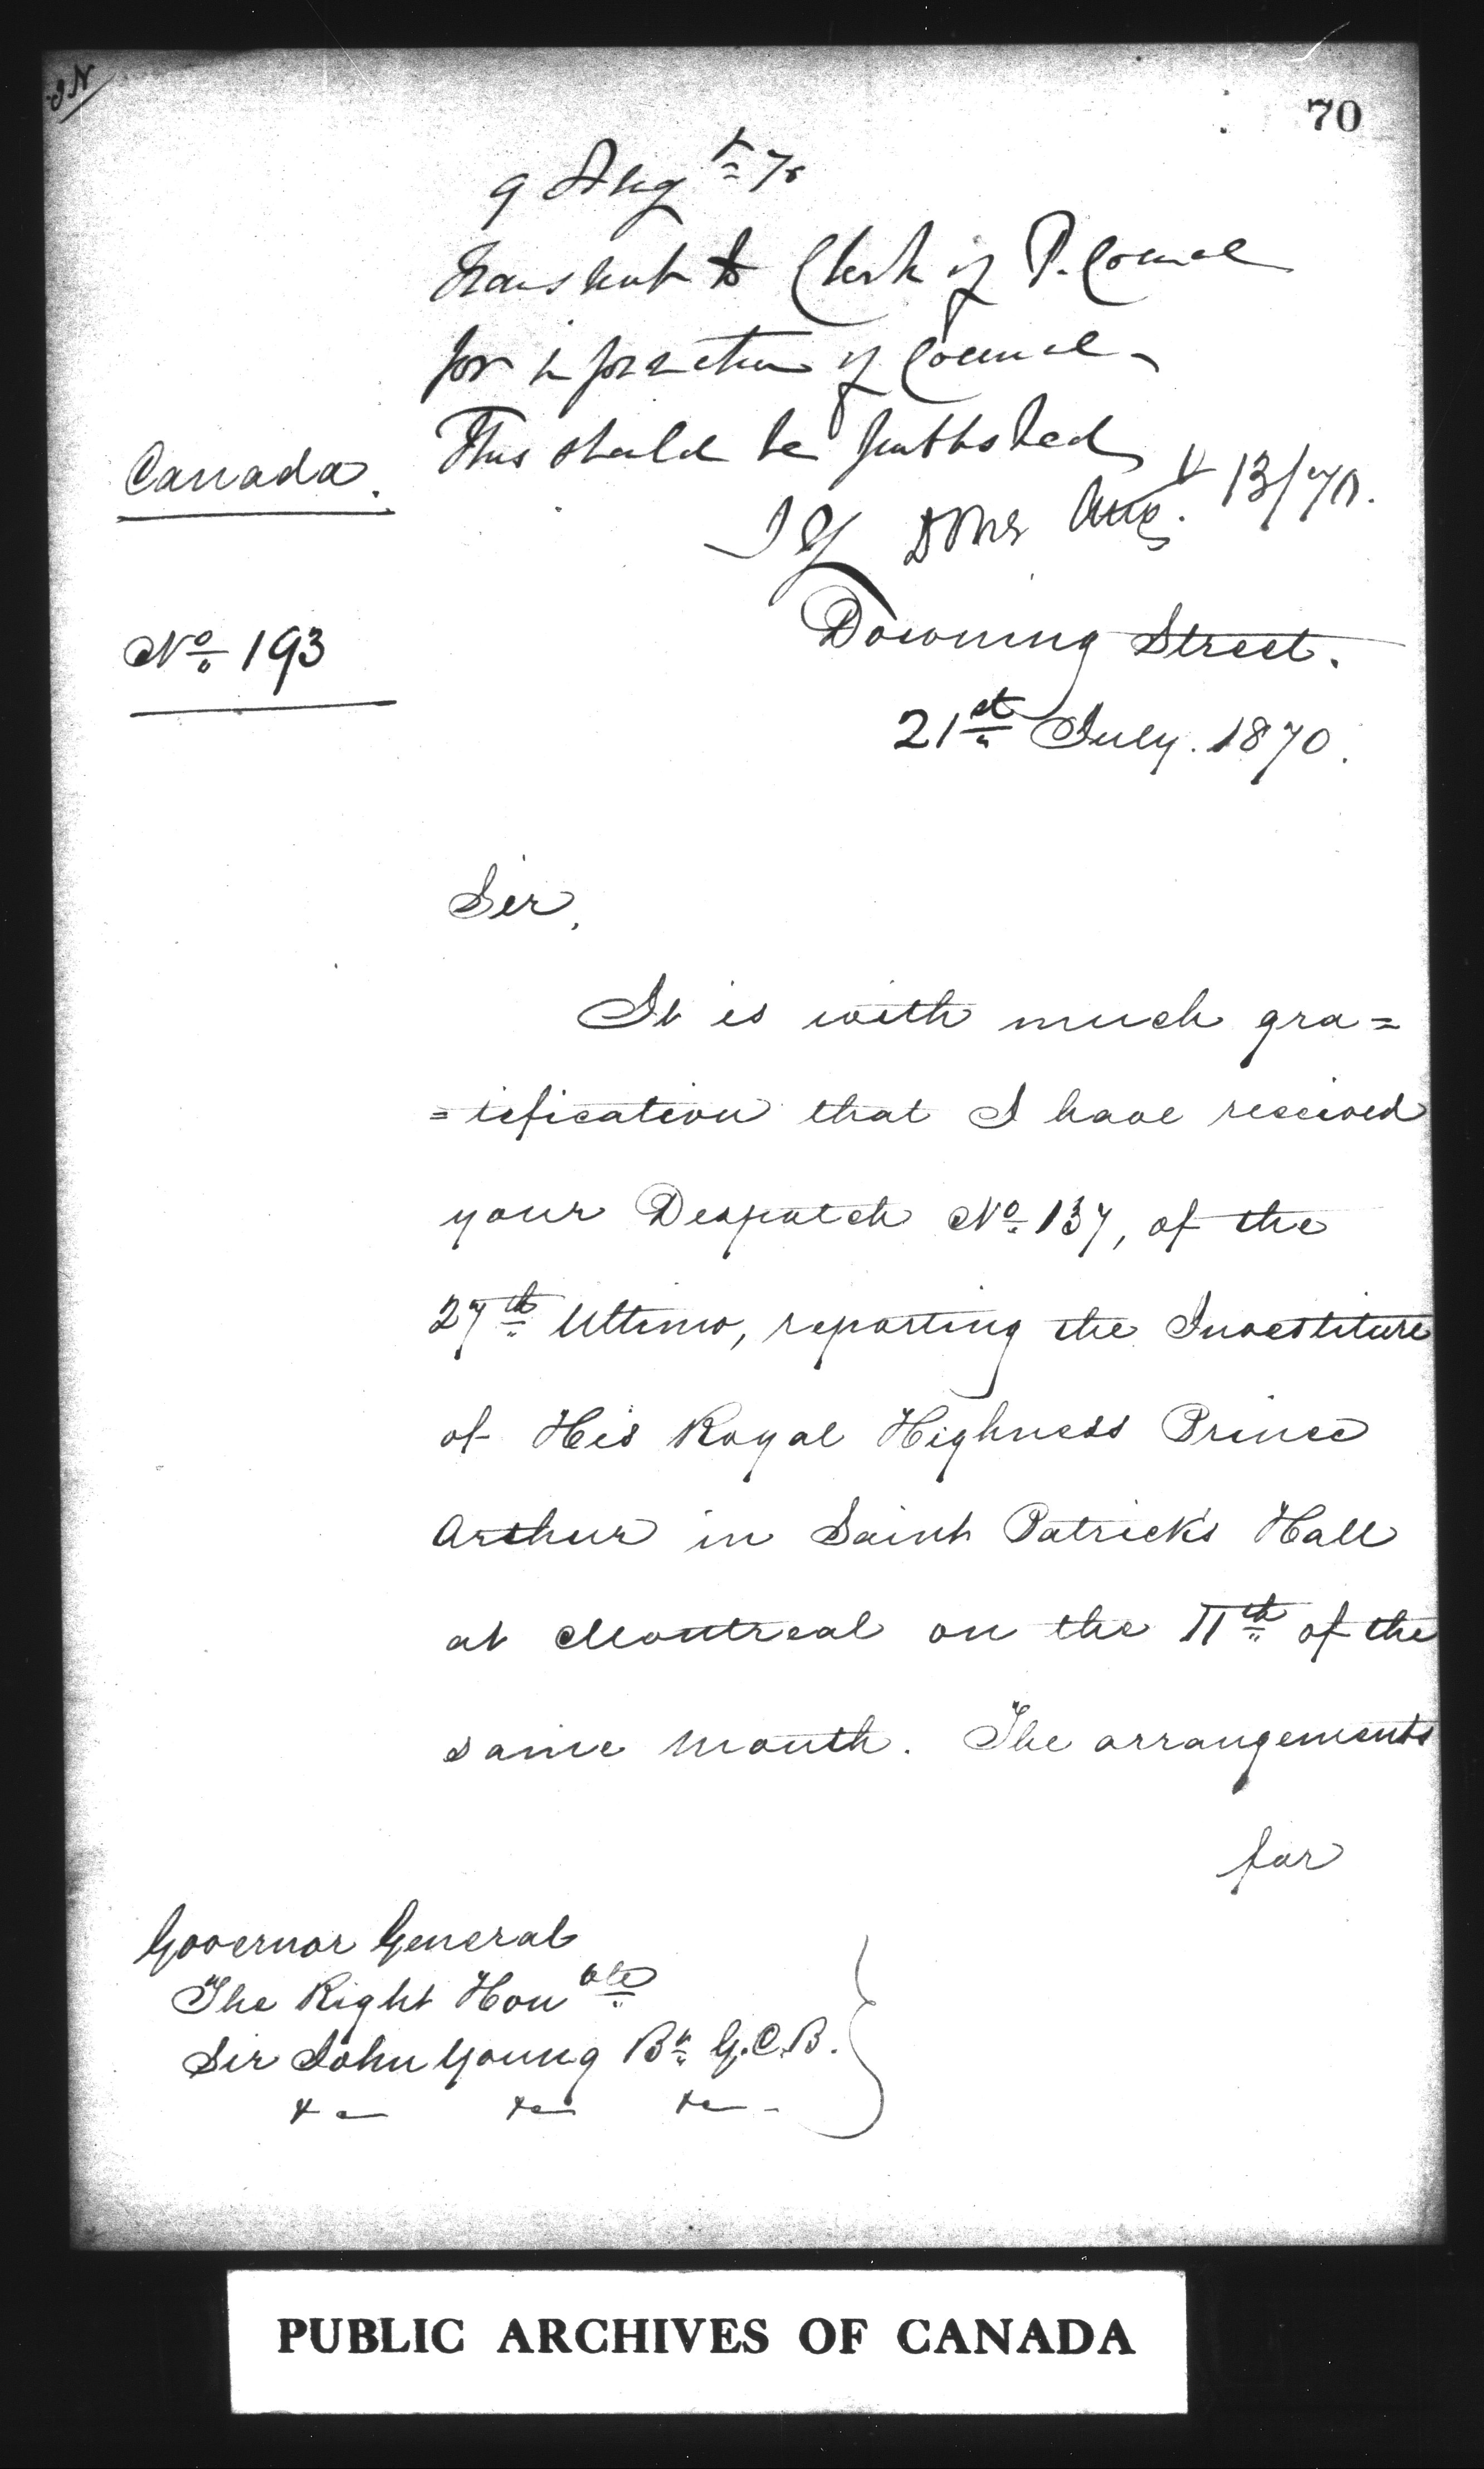 70
9 Augt 70
Transmit to Clerk of P. Council
for information of Council
This should be published
Canada.
JY Done Augt 13/70.
No 193
Downing Street.
21st July. 1870.
Sir,
It is with much gra=
=tification that I have received
your Despatch No 137, of the
27th Ultimo, reporting the Investiture
of His Royal Highness Prince
Arthur in Saint Patrick's Hall
at Montreal on the 11th of the
same month. The arrangements
for
Governor General
The Right Honble
Sir John Young Bt G.C.B.
&c &c &c
PUBLIC ARCHIVES OF CANADA